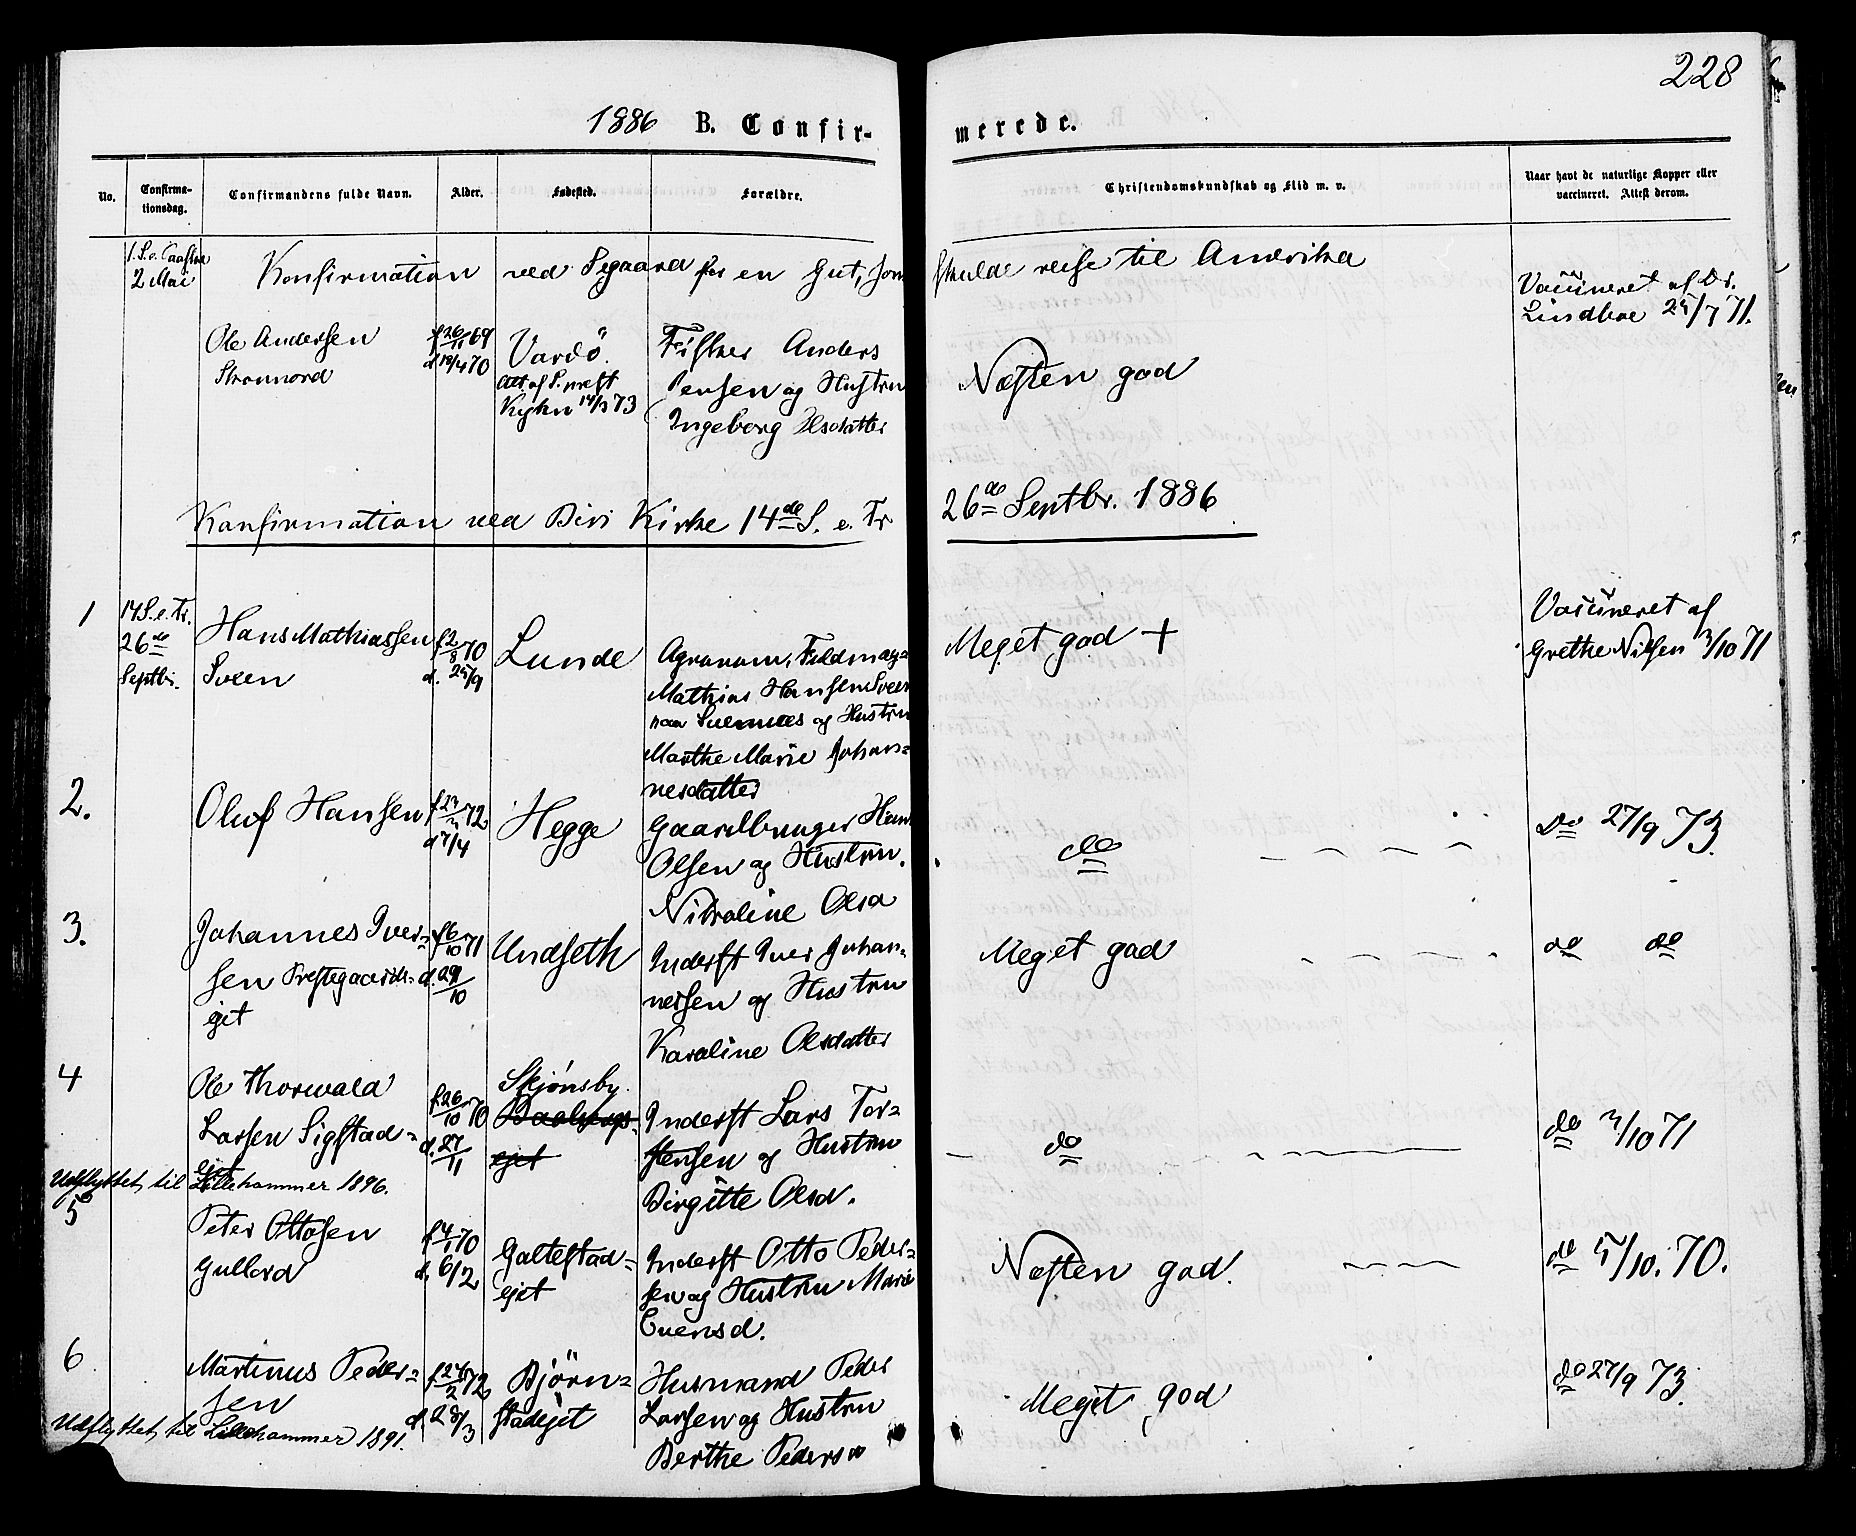 228
1886 B. Confirmerede.
No. Confirmationsdag. Confirmandens fulde Navn. Alder. Fødested. Forældre. Christendomskundskab og Flid m. v. Naar havt de naturlige Kopper eller vaccineret. Attest derom.
1. S. e. Paaske
2 Mai
Konfirmation ved Segaard for en Gut, som skulde reise til Amerika
Vaccineret af Dr.
Lindboe 25/7 71.
Ole Andersen
f 26/11 69
d 18/4 70
Vardö.
Att. af S. prest
14/3 73
Fisker Anders
Jensen og Hustru
Ingeborg Olsdatter
Næsten god
Konfirmation ved Biri Kirke 14de S. e. Tr 26de Septbr. 1886
1
14 S. e. Tr.
26de
Septbr.
Hans Mathiassen
Sveen
f 2/8 70
d. 25/9
Lunde
Agronom,
Mathias Hansen Sveen
og Hustru
Marthe Marie Johan-
nesdatter
Meget god +
Vaccineret af
Grethe Nilsen 3/10 71
2.
Oluf Hansen
72
d 7/4
Hegge
Gaardbruger Hans
Olsen og Hustru
Nikoline Olsd
do
Do 27/9 73.
3.
Johannes Iver-
sen Prestegaards-
ejet
f 6/10 71
d. 29/10
Undseth
Inderst Iver Johan-
nessen og Hustru
Karoline Olsdatter
Meget god
do do
4
Ole Thorwald
Larsen Sigstad-
ejet
f 26/10 70
d. 27/11
Skjønsby
ejet
Inderst Lars Tor-
stensen og Hustru
Birgitte Olsd.
do
do 3/10 71
Udflyttet til Lillehammer 1896.
5
Peter Ottosen
Gullord
f 4/1 70
d. 6/2
Galtestad-
ejet
Inderst Otto Peder-
sen og Hustru Marie
Evensd.
Næsten god.
do 5/10. 70.
6
Martinus Peder-
sen
f 24/2 72
d. 28/3
Björn-
stadejet
Husmand Peder
Larsen og Hustru
Berthe Pedersd
Meget god
do 27/9 73.
Udflyttet til Lillehammer 1891.